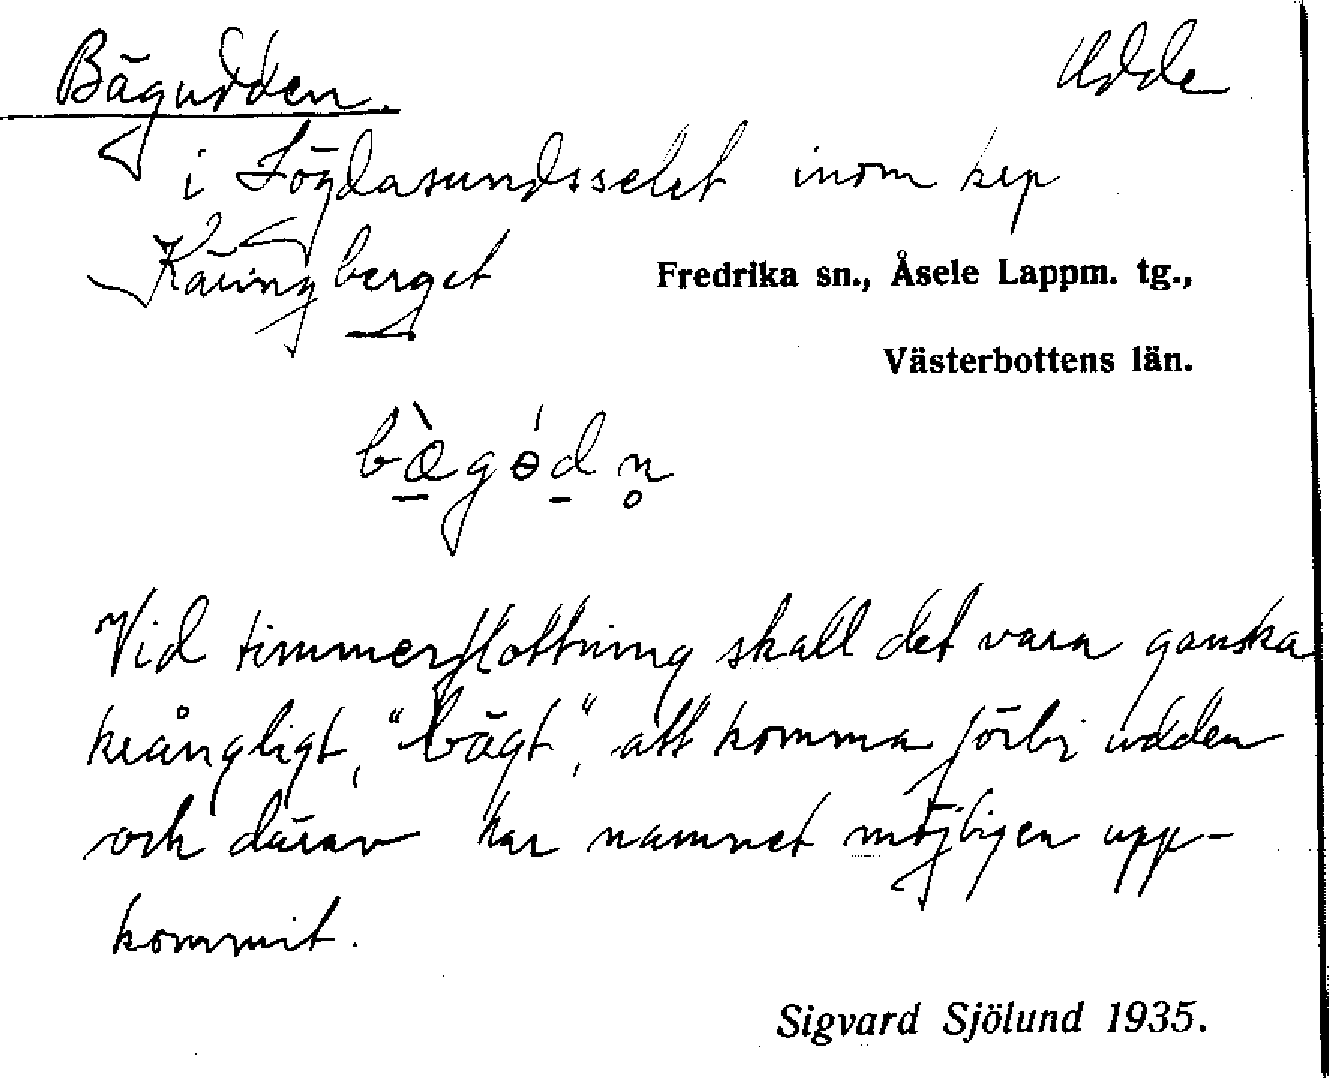 Bägudden. Udde
i Lögdasundsselet inom kep
Käringberget
Fredrika sn., Åsele Lappm. tg.,
Västerbottens län.
bægödn
Vid timmerflottning skall det vara ganska
krångligt, "bägt", att komma förbi udden
och därav har namnet möjligen upp-
kommit.
Sigvard Sjölund 1935.